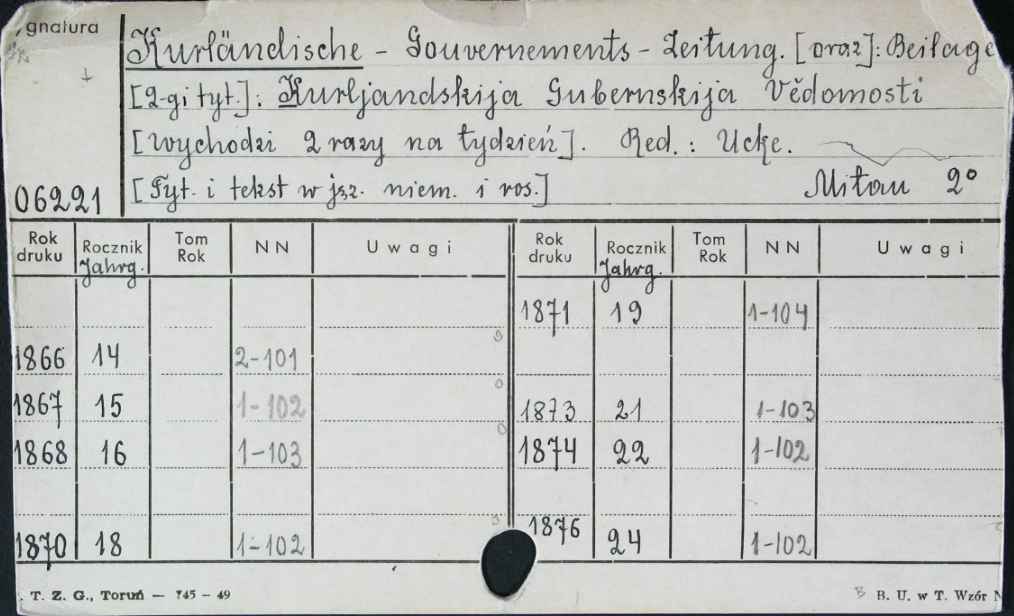 gnatura
Kurländische - Gouvernements - Zeitung. [oraz]: Beilage
[2-gi tyt.]: Kurljandskija Gubernskija Vědomosti
[wychodzi 2 razy na tydzień]. Red.: Ucke.
06221 [Tyt. i tekst w jęz. niem. i ros.] Mitau 2°
Rok druku Rocznik Jahrg. Tom Rok N N Uwagi Rok druku Rocznik Jahrg. Tom Rok N N Uwagi
1871 19 1-104
1866 14 2-101
1867 15 1-102 1873 21 1-103
1868 16 1-103 1874 22 1-102
1870 18 1-102 1876 24 1-102
T. Z. G., Toruń — 745 - 49 B. U. w T. Wzór N